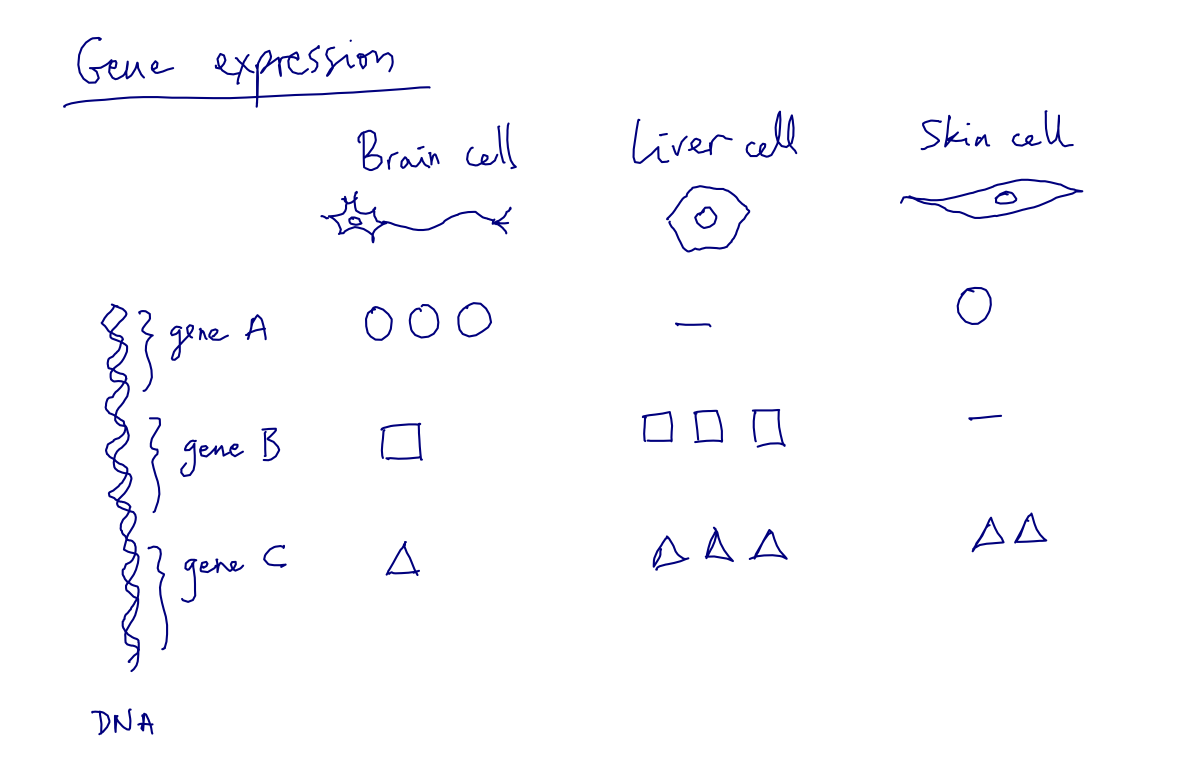 Gene expression
Brain cell
Liver cell
Skin cell
gene A
gene B
gene C
DNA